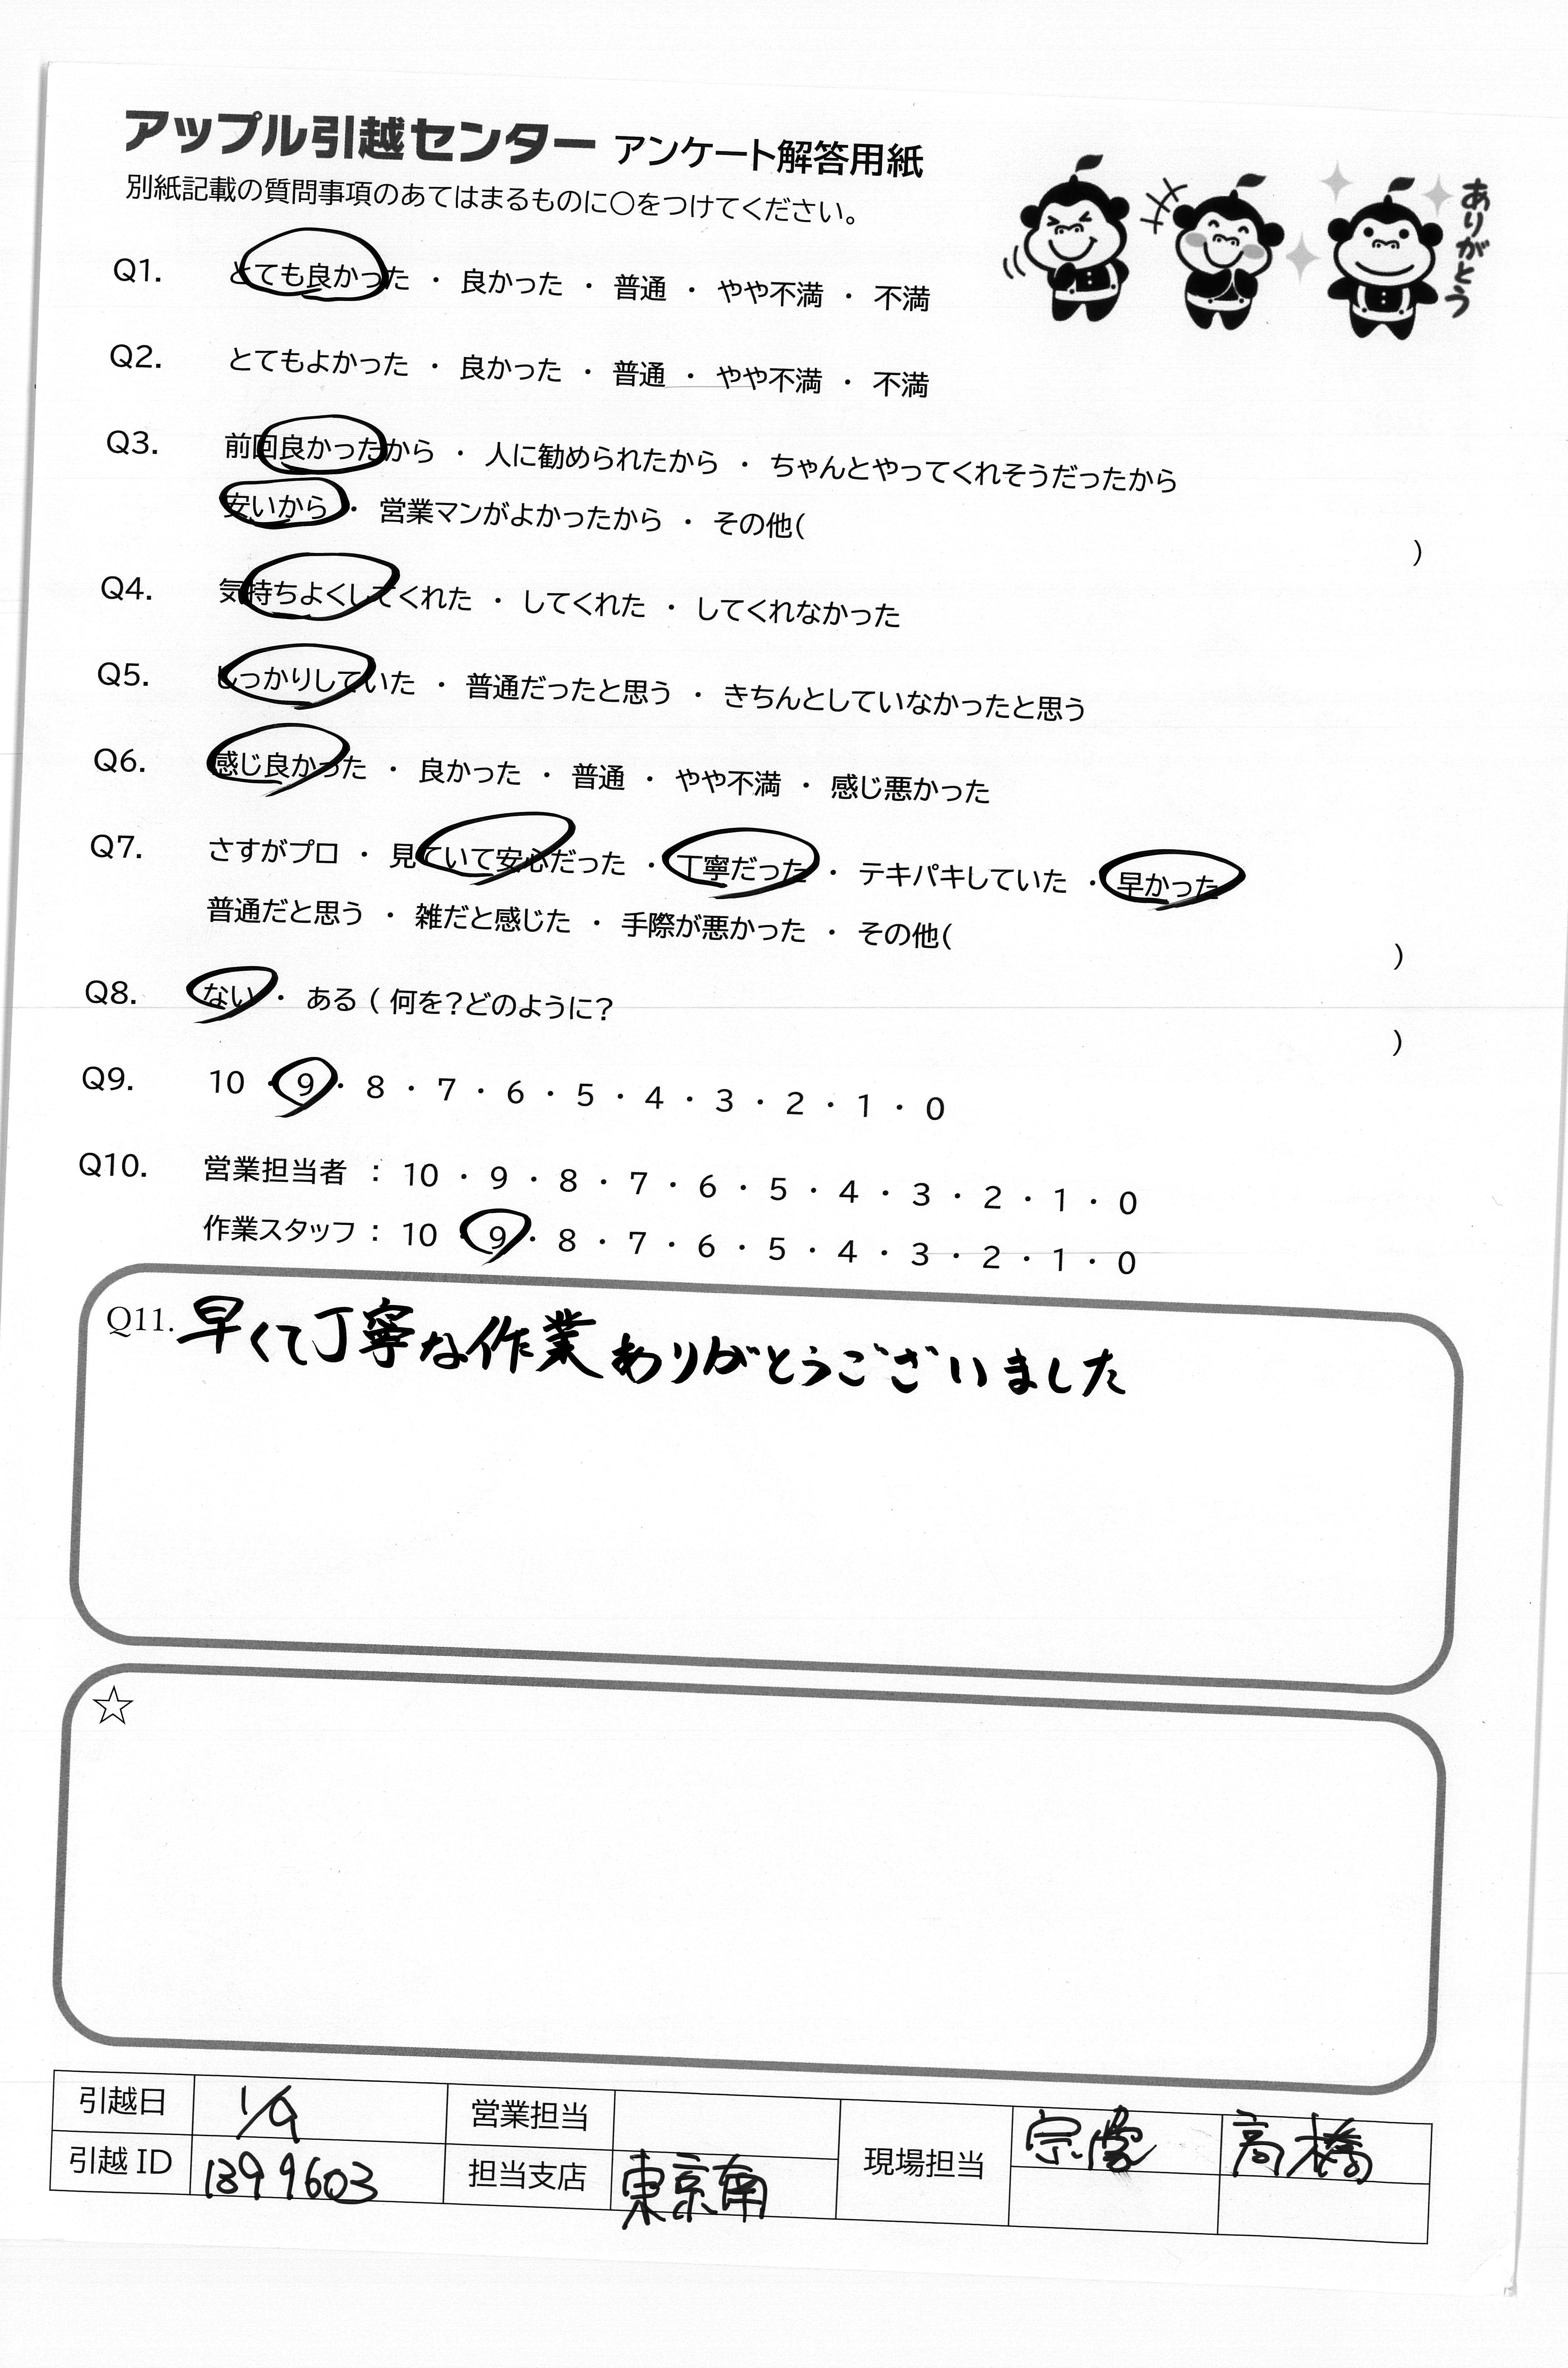 アップル引越センター アンケート解答用紙
別紙記載の質問事項のあてはまるものに○をつけてください。
ありがとう
Q1. とても良かった ・ 良かった ・ 普通 ・ やや不満 ・ 不満
Q2. とてもよかった ・ 良かった ・ 普通 ・ やや不満 ・ 不満
Q3. 前回良かったから ・ 人に勧められたから ・ ちゃんとやってくれそうだったから
安いから ・ 営業マンがよかったから ・ その他( )
Q4. 気持ちよくしてくれた ・ してくれた ・ してくれなかった
Q5. しっかりしていた ・ 普通だったと思う ・ きちんとしていなかったと思う
Q6. 感じ良かった ・ 良かった ・ 普通 ・ やや不満 ・ 感じ悪かった
Q7. さすがプロ ・ 見ていて安心だった ・ 丁寧だった ・ テキパキしていた ・ 早かった
普通だと思う ・ 雑だと感じた ・ 手際が悪かった ・ その他( )
Q8. ない ・ ある ( 何を?どのように? )
Q9. 10 ・ 9 ・ 8 ・ 7 ・ 6 ・ 5 ・ 4 ・ 3 ・ 2 ・ 1 ・ 0
Q10. 営業担当者 : 10 ・ 9 ・ 8 ・ 7 ・ 6 ・ 5 ・ 4 ・ 3 ・ 2 ・ 1 ・ 0
作業スタッフ : 10 ・ 9 ・ 8 ・ 7 ・ 6 ・ 5 ・ 4 ・ 3 ・ 2 ・ 1 ・ 0
Q11. 早くて丁寧な作業ありがとうございました
☆
引越日 1/9 営業担当 現場担当 高橋
引越 ID 1399603 担当支店 東京南